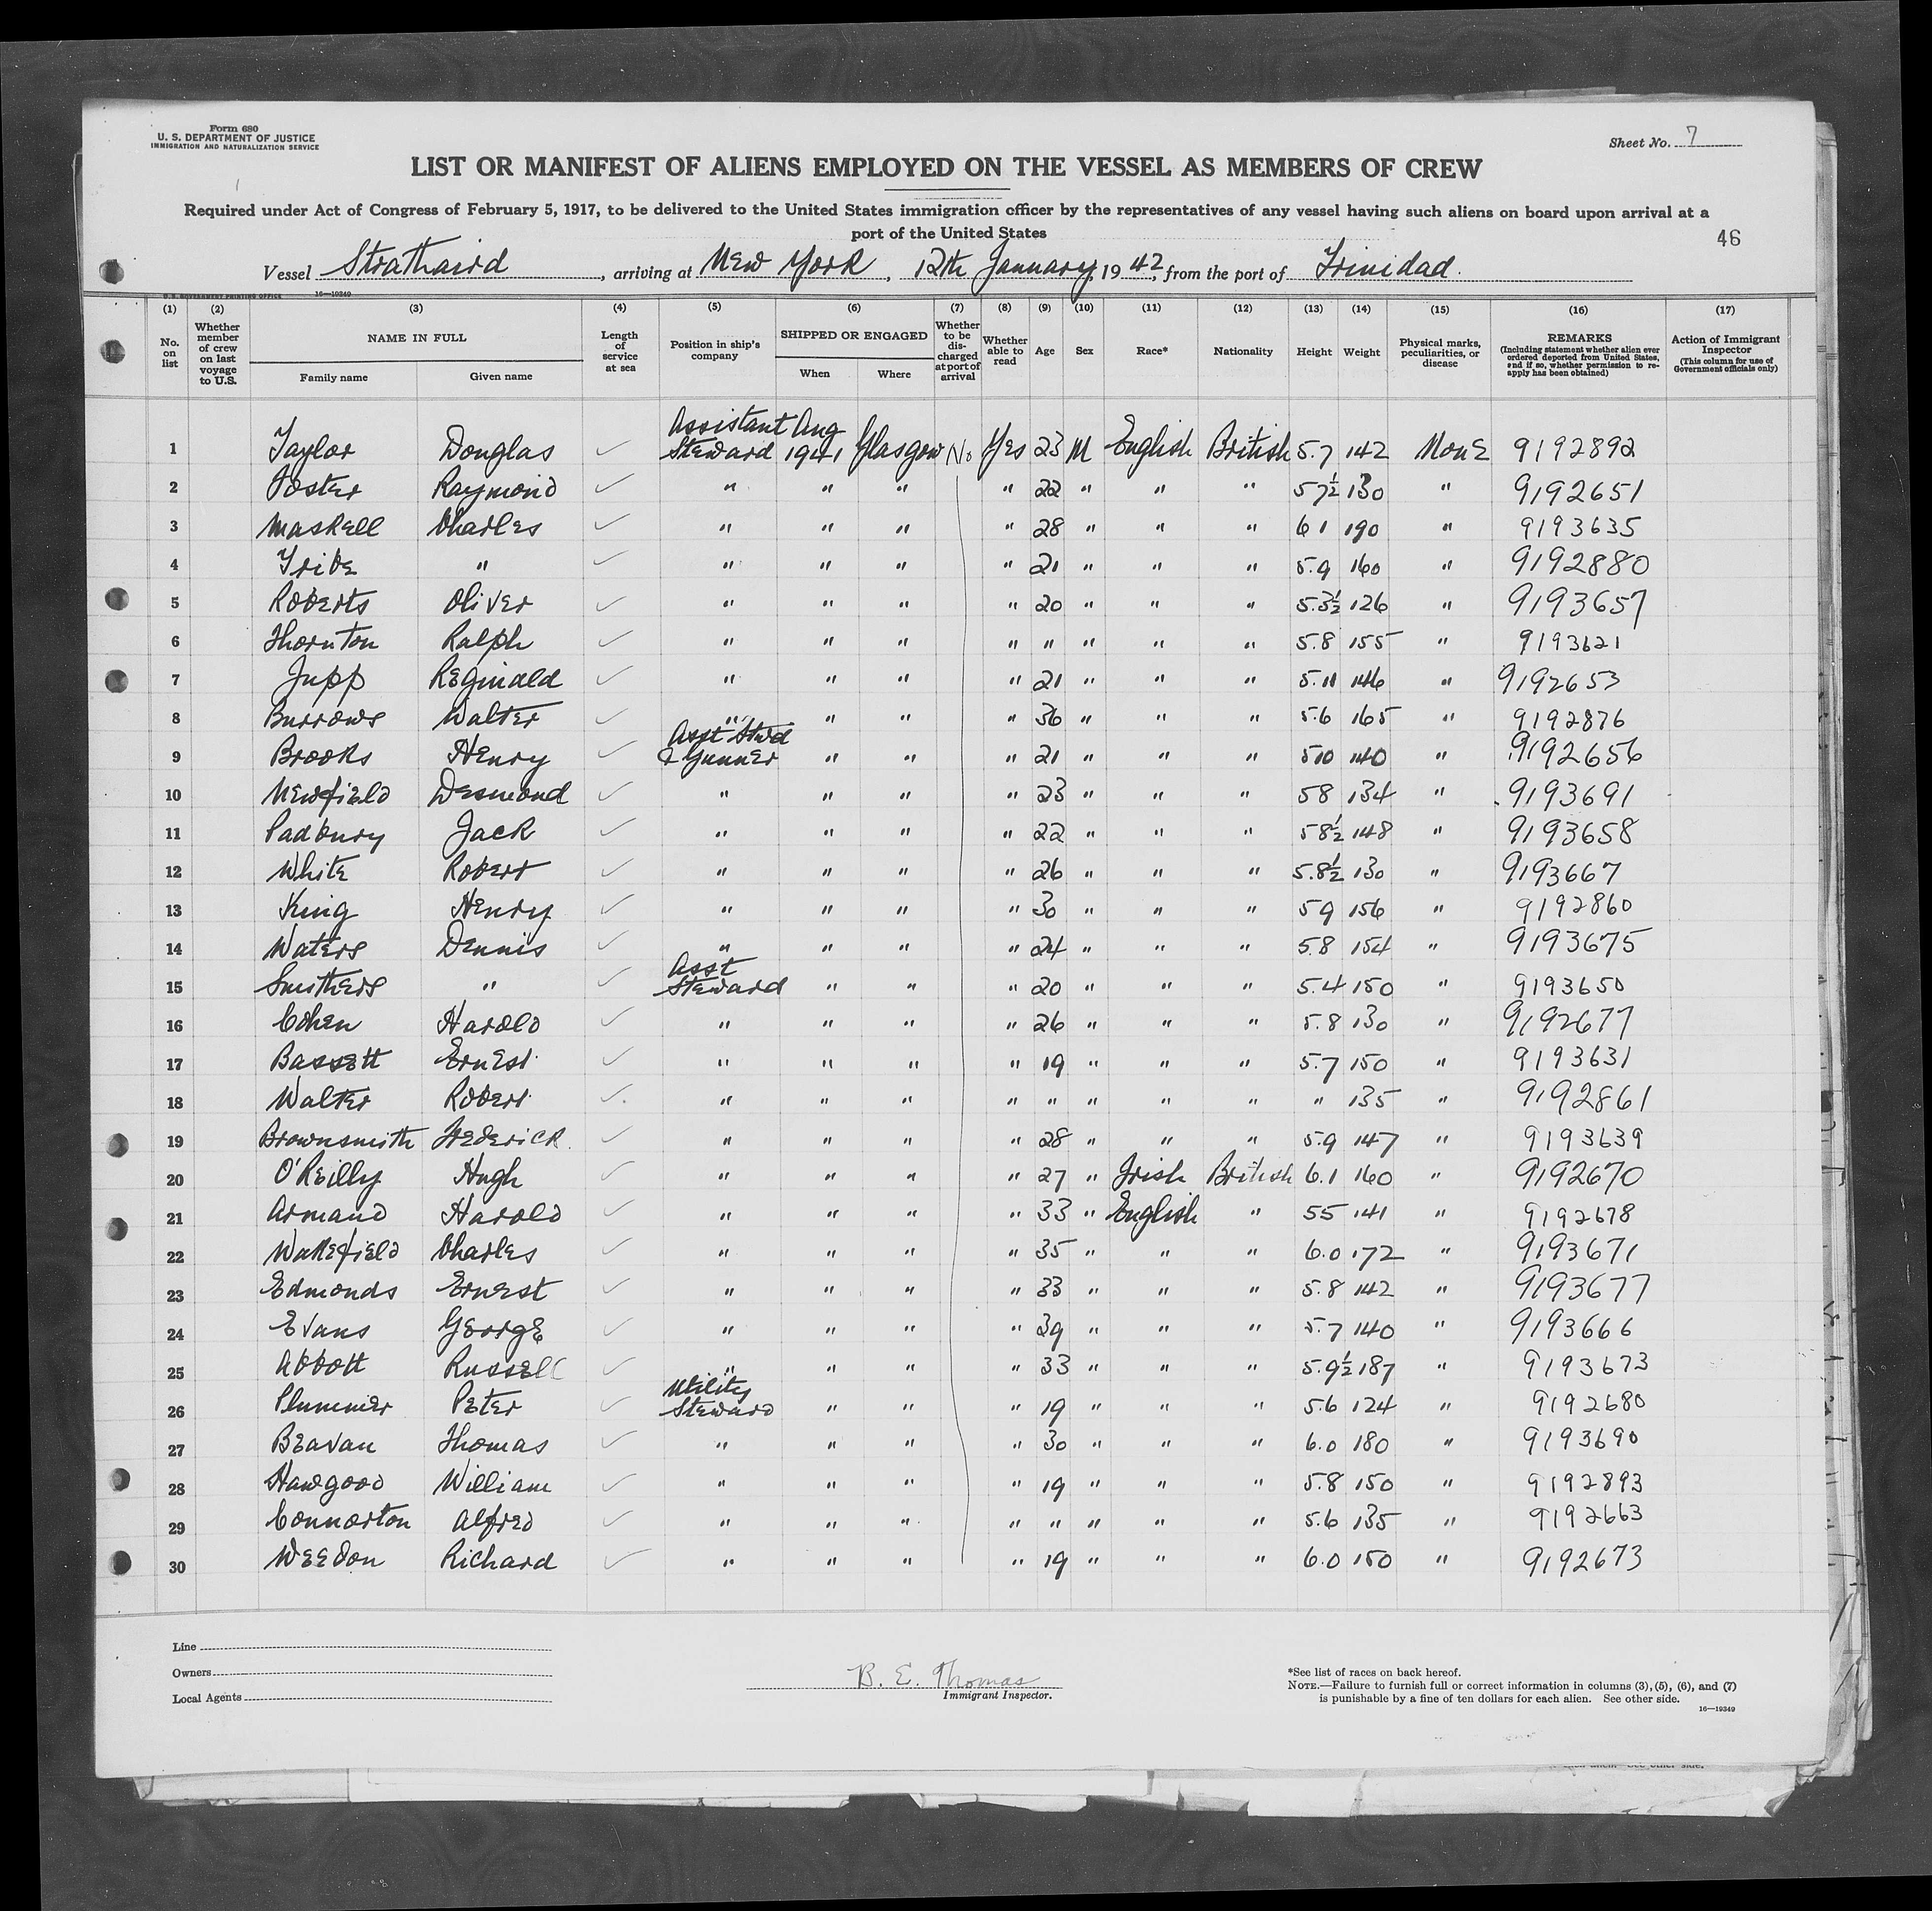 Form 680
U. S. DEPARTMENT OF JUSTICE
IMMIGRATION AND NATURALIZATION SERVICE
Sheet No. 7
LIST OR MANIFEST OF ALIENS EMPLOYED ON THE VESSEL AS MEMBERS OF CREW
Required under Act of Congress of February 5, 1917, to be delivered to the United States immigration officer by the representatives of any vessel having such aliens on board upon arrival at a
port of the United States
46
Vessel Strathaird, arriving at New York, 12th January, 1942, from the port of Trinidad.
U. S. GOVERNMENT PRINTING OFFICE 16—19349
(1) (2) (3) (4) (5) (6) (7) (8) (9) (10) (11) (12) (13) (14) (15) (16) (17)
No. on list Whether member of crew on last voyage to U.S. NAME IN FULL Family name Given name Length of service at sea Position in ship's company SHIPPED OR ENGAGED When Where Whether to be discharged at port of arrival Whether able to read Age Sex Race* Nationality Height Weight Physical marks, peculiarities, or disease REMARKS (Including statement whether alien ever ordered deported from United States, and if so, whether permission to reapply has been obtained) Action of Immigrant Inspector (This column for use of Government officials only)
1 Taylor Douglas ✓ Assistant Steward Aug 1941 Glasgow No Yes 23 M English British 5.7 142 None 9192892
2 Foster Raymond ✓ " " " " 22 " " " 5 7½ 130 " 9192651
3 Maskell Charles ✓ " " " " 28 " " " 6 1 190 " 9193635
4 Tribe " ✓ " " " " 21 " " " 5.9 160 " 9192880
5 Roberts Oliver ✓ " " " " 20 " " " 5.3½ 126 " 9193657
6 Thornton Ralph ✓ " " " " " " " " 5.8 155 " 9193621
7 Jupp Reginald ✓ " " " " 21 " " " 5.11 146 " 9192653
8 Burrows Walter ✓ " " " " 36 " " " 5.6 165 " 9192876
9 Brooks Henry ✓ Asst Stwd & Gunner " " " 21 " " " 5 10 140 " 9192656
10 Newfield Desmond ✓ " " " " 23 " " " 5 8 134 " 9193691
11 Padbury Jack ✓ " " " " 22 " " " 5 8½ 148 " 9193658
12 White Robert ✓ " " " " 26 " " " 5.8½ 130 " 9193667
13 King Henry ✓ " " " " 30 " " " 5 9 156 " 9192860
14 Waters Dennis ✓ " " " " 24 " " " 5.8 154 " 9193675
15 Smithers " ✓ Asst Steward " " " 20 " " " 5.4 150 " 9193650
16 Cohen Harold ✓ " " " " 26 " " " 5.8 130 " 9192677
17 Bassett Ernest ✓ " " " " 19 " " " 5.7 150 " 9193631
18 Walter Robert ✓ " " " " " " " " " 135 " 9192861
19 Brownsmith Frederick ✓ " " " " 28 " " " 5.9 147 " 9193639
20 O'Reilly Hugh ✓ " " " " 27 " Irish British 6.1 160 " 9192670
21 Armand Harold ✓ " " " " 33 " English " 5 5 141 " 9192678
22 Wakefield Charles ✓ " " " " 35 " " " 6.0 172 " 9193671
23 Edmonds Ernest ✓ " " " " 33 " " " 5.8 142 " 9193677
24 Evans George ✓ " " " " 39 " " " 5.7 140 " 9193666
25 Abbott Russell ✓ " " " " 33 " " " 5.9½ 187 " 9193673
26 Plummer Peter ✓ Utility Steward " " " 19 " " " 5.6 124 " 9192680
27 Beavan Thomas ✓ " " " " 30 " " " 6.0 180 " 9193690
28 Hawgood William ✓ " " " " 19 " " " 5.8 150 " 9192893
29 Connorton Alfred ✓ " " " " " " " " 5.6 135 " 9192663
30 Weedon Richard ✓ " " " " 19 " " " 6.0 150 " 9192673
Line
Owners
Local Agents
B. E. Thomas
Immigrant Inspector.
*See list of races on back hereof.
NOTE.—Failure to furnish full or correct information in columns (3), (5), (6), and (7)
is punishable by a fine of ten dollars for each alien. See other side.
16—19349